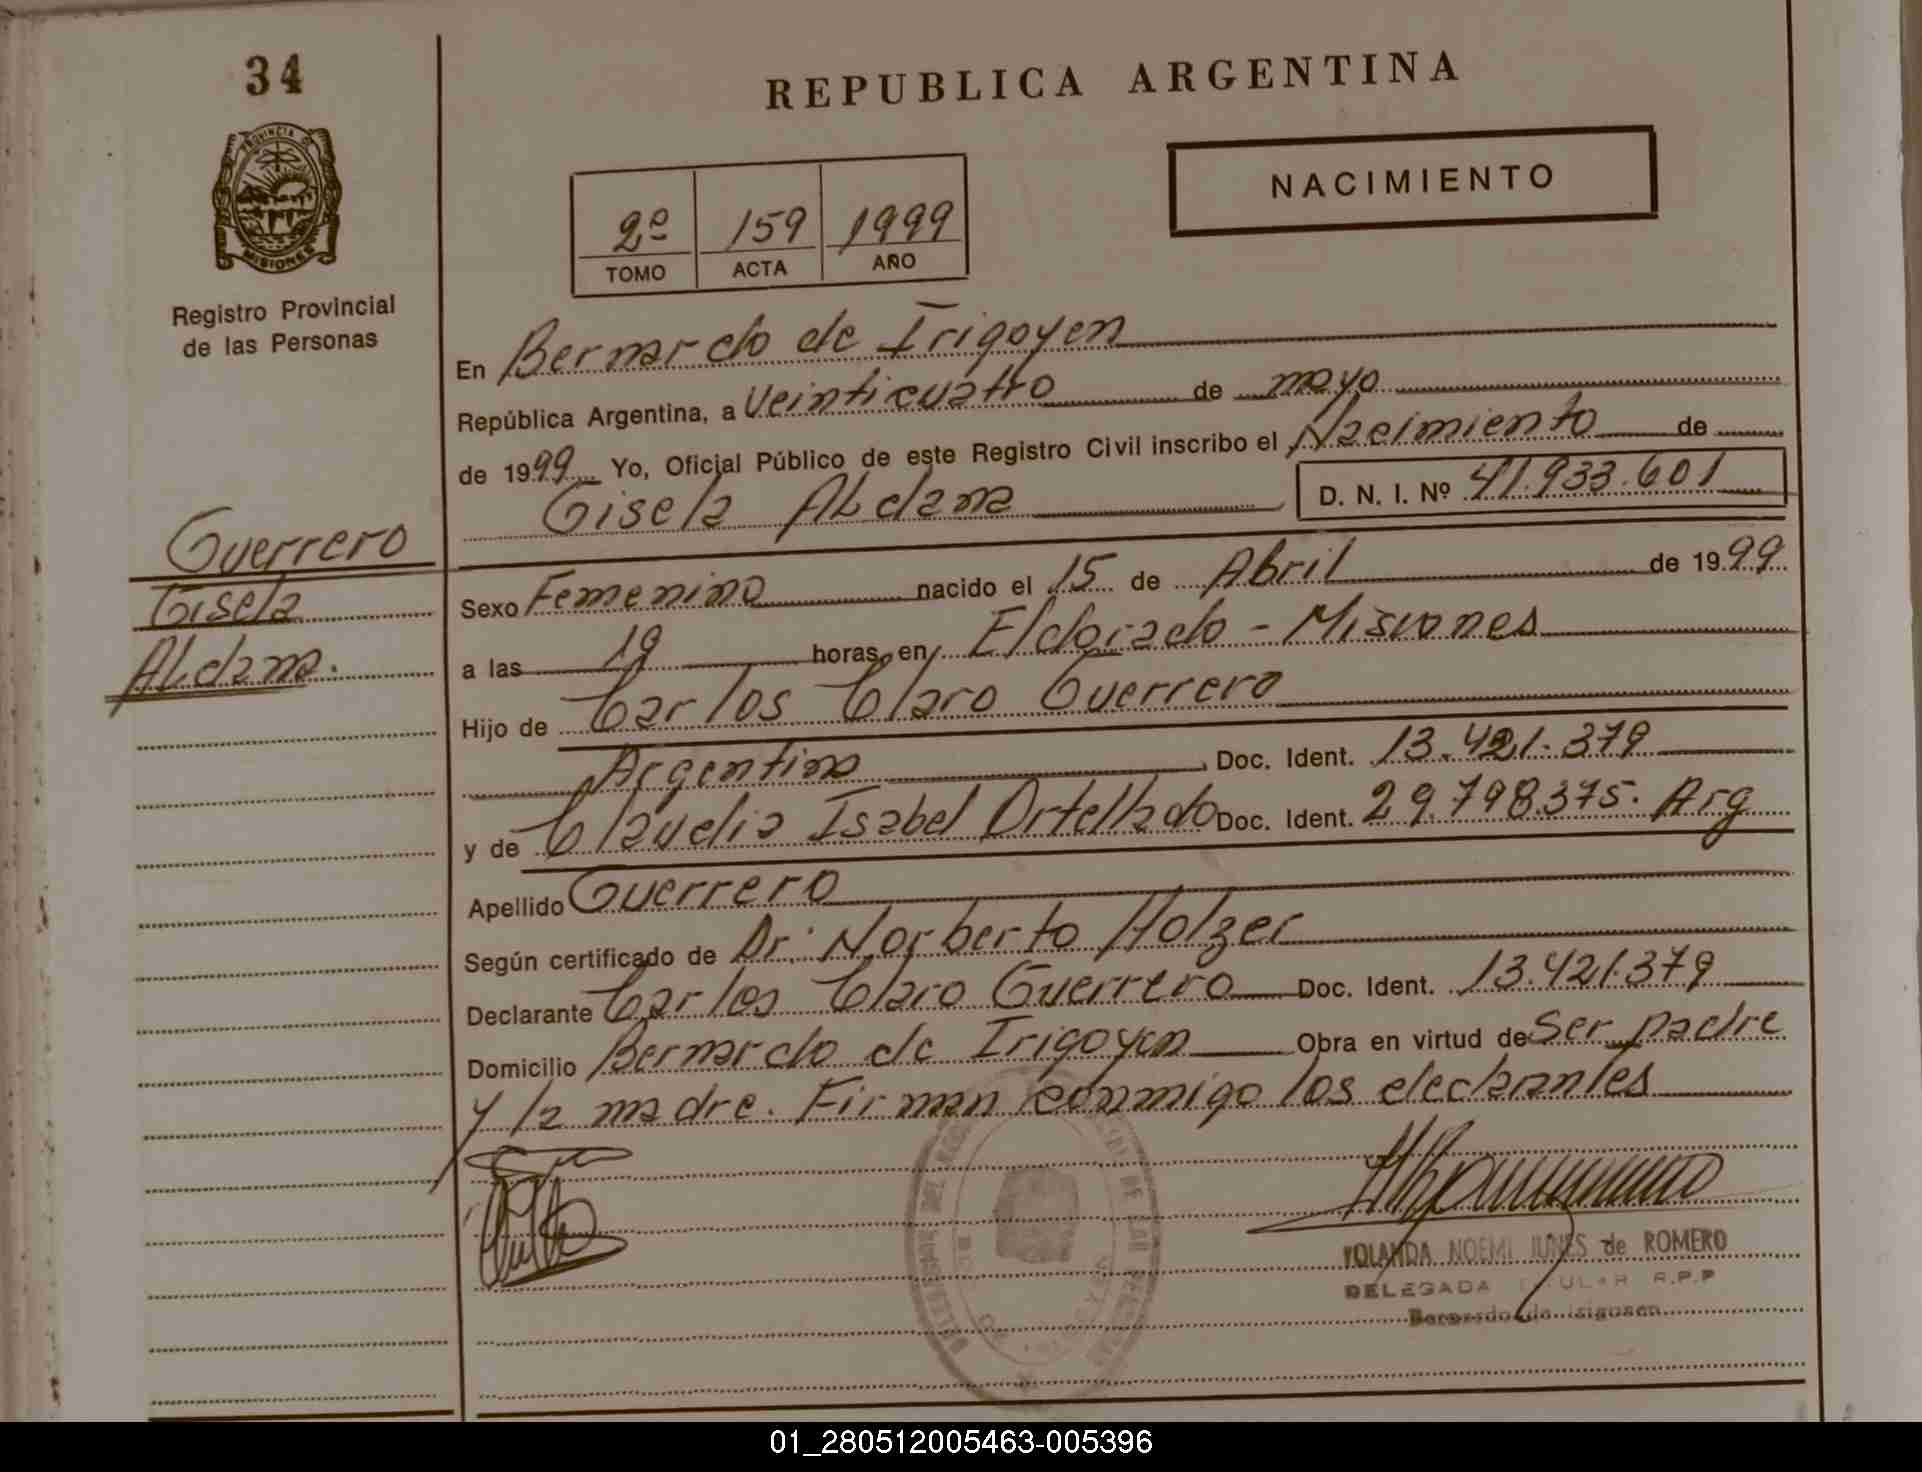 34
REPUBLICA ARGENTINA
PROVINCIA DE
MISIONES
Registro Provincial
de las Personas
2º 159 1999
TOMO ACTA AÑO
NACIMIENTO
En Bernardo de Irigoyen
República Argentina, a Veinticuatro de mayo
de 1999 Yo, Oficial Público de este Registro Civil inscribo el Nacimiento de
Gisela Aldana D. N. I. Nº 41.933.601
Guerrero
Gisela
Aldana.
Sexo Femenino nacido el 15 de Abril de 1999
a las 19 horas, en Eldorado - Misiones
Hijo de Carlos Claro Guerrero
Argentino Doc. Ident. 13.421.379
y de Claudia Isabel Ortellado Doc. Ident. 29.798.375. Arg
Apellido Guerrero
Según certificado de Dr. Norberto Holzer
Declarante Carlos Claro Guerrero Doc. Ident. 13.421.379
Domicilio Bernardo de Irigoyen Obra en virtud de Ser padre
y la madre. Firman conmigo los declarantes
YOLANDA NOEMI JUNES de ROMERO
DELEGADA TITULAR R.P.P
Bernardo de Irigoyen
01_280512005463-005396